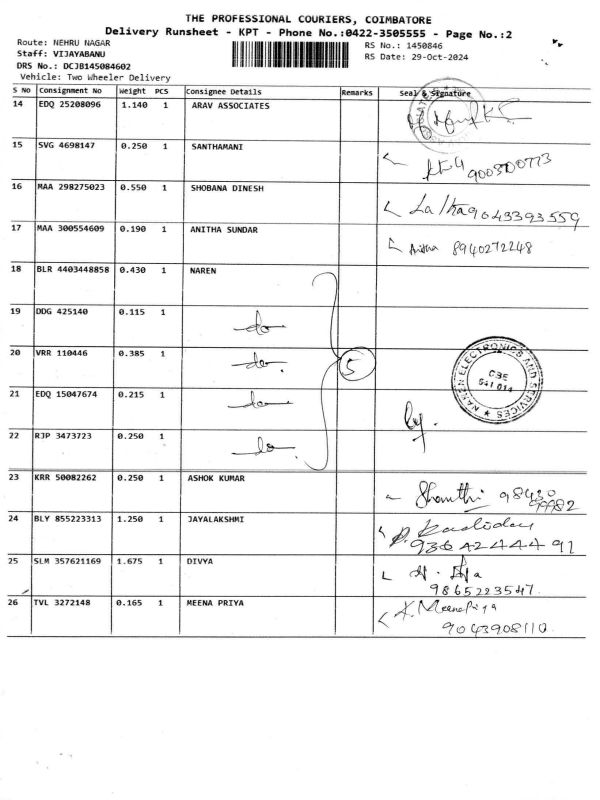 THE PROFESSIONAL COURIERS, COIMBATORE
Delivery Runsheet - KPT - Phone No.:0422-3505555 - Page No.:2
Route: NEHRU NAGAR
RS No.: 1450846
Staff: VIJAYABANU
RS Date: 29-Oct-2024
DRS No.: DCJB145084602
Vehicle: Two Wheeler Delivery
S No Consignment No Weight PCS Consignee Details Remarks Seal & Signature
14 EDQ 25208096 1.140 1 ARAV ASSOCIATES
15 SVG 4698147 0.250 1 SANTHAMANI
16 MAA 298275023 0.550 1 SHOBANA DINESH Latha 9043393559
17 MAA 300554609 0.190 1 ANITHA SUNDAR Anitha 8940272248
18 BLR 4403448858 0.430 1 NAREN
19 DDG 425140 0.115 1 do
20 VRR 110446 0.385 1 do. 5
NAREN ELECTRONICS AND SERVICES
CBE
641 014
21 EDQ 15047674 0.215 1 do
22 RJP 3473723 0.250 1 do.
23 KRR 50082262 0.250 1 ASHOK KUMAR Shanthi 98430
99982
24 BLY 855223313 1.250 1 JAYALAKSHMI
93642444 91
25 SLM 357621169 1.675 1 DIVYA
9865223547.
26 TVL 3272148 0.165 1 MEENA PRIYA K. Meenapriya
9043908110.